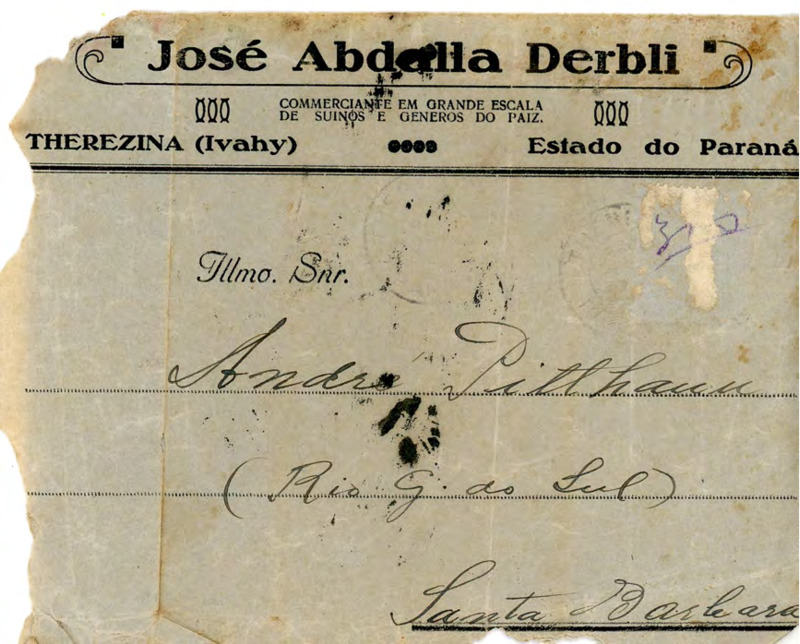 José Abdalla Derbli
COMMERCIANTE EM GRANDE ESCALA
DE SUINOS E GENEROS DO PAIZ.
THEREZINA (Ivahy) Estado do Paraná
Illmo. Snr.
André Pitthann
(Rio G. do Sul)
Santa Barbara